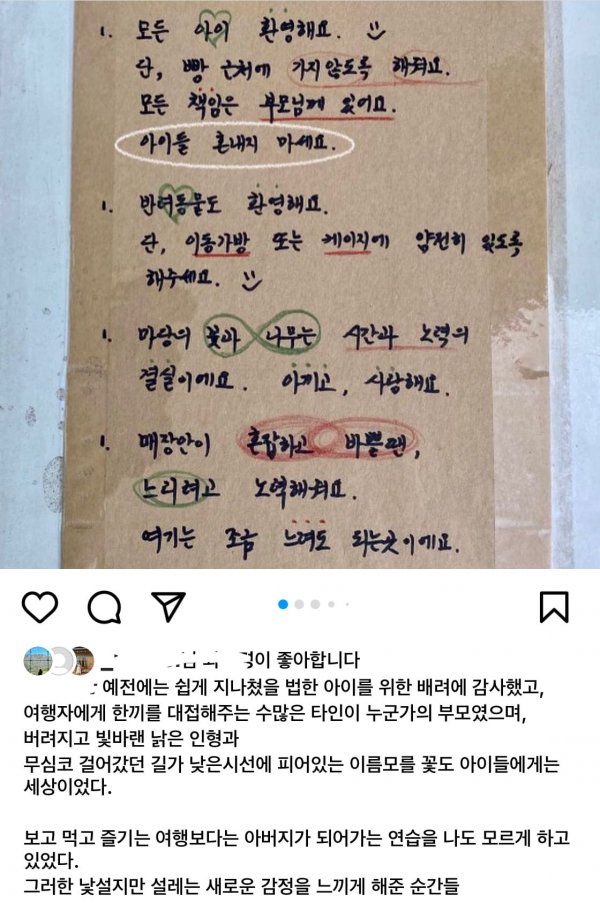 1. 모든 아이 환영해요.
단, 빵 근처에 가지 않도록 해줘요.
모든 책임은 부모님께 있어요.
아이들 혼내지 마세요.
1. 반려동물도 환영해요.
단, 이동가방 또는 케이지에 얌전히 있도록
해주세요.
1. 마당의 꽃과 나무는 시간과 노력의
결실이에요. 아끼고, 사랑해요.
1. 매장안이 혼잡하고 바쁠땐,
느리려고 노력해줘요.
여기는 조금 느려도 되는곳이에요.
이 좋아합니다
예전에는 쉽게 지나쳤을 법한 아이를 위한 배려에 감사했고,
여행자에게 한끼를 대접해주는 수많은 타인이 누군가의 부모였으며,
버려지고 빛바랜 낡은 인형과
무심코 걸어갔던 길가 낮은시선에 피어있는 이름모를 꽃도 아이들에게는
세상이었다.
보고 먹고 즐기는 여행보다는 아버지가 되어가는 연습을 나도 모르게 하고
있었다.
그러한 낯설지만 설레는 새로운 감정을 느끼게 해준 순간들